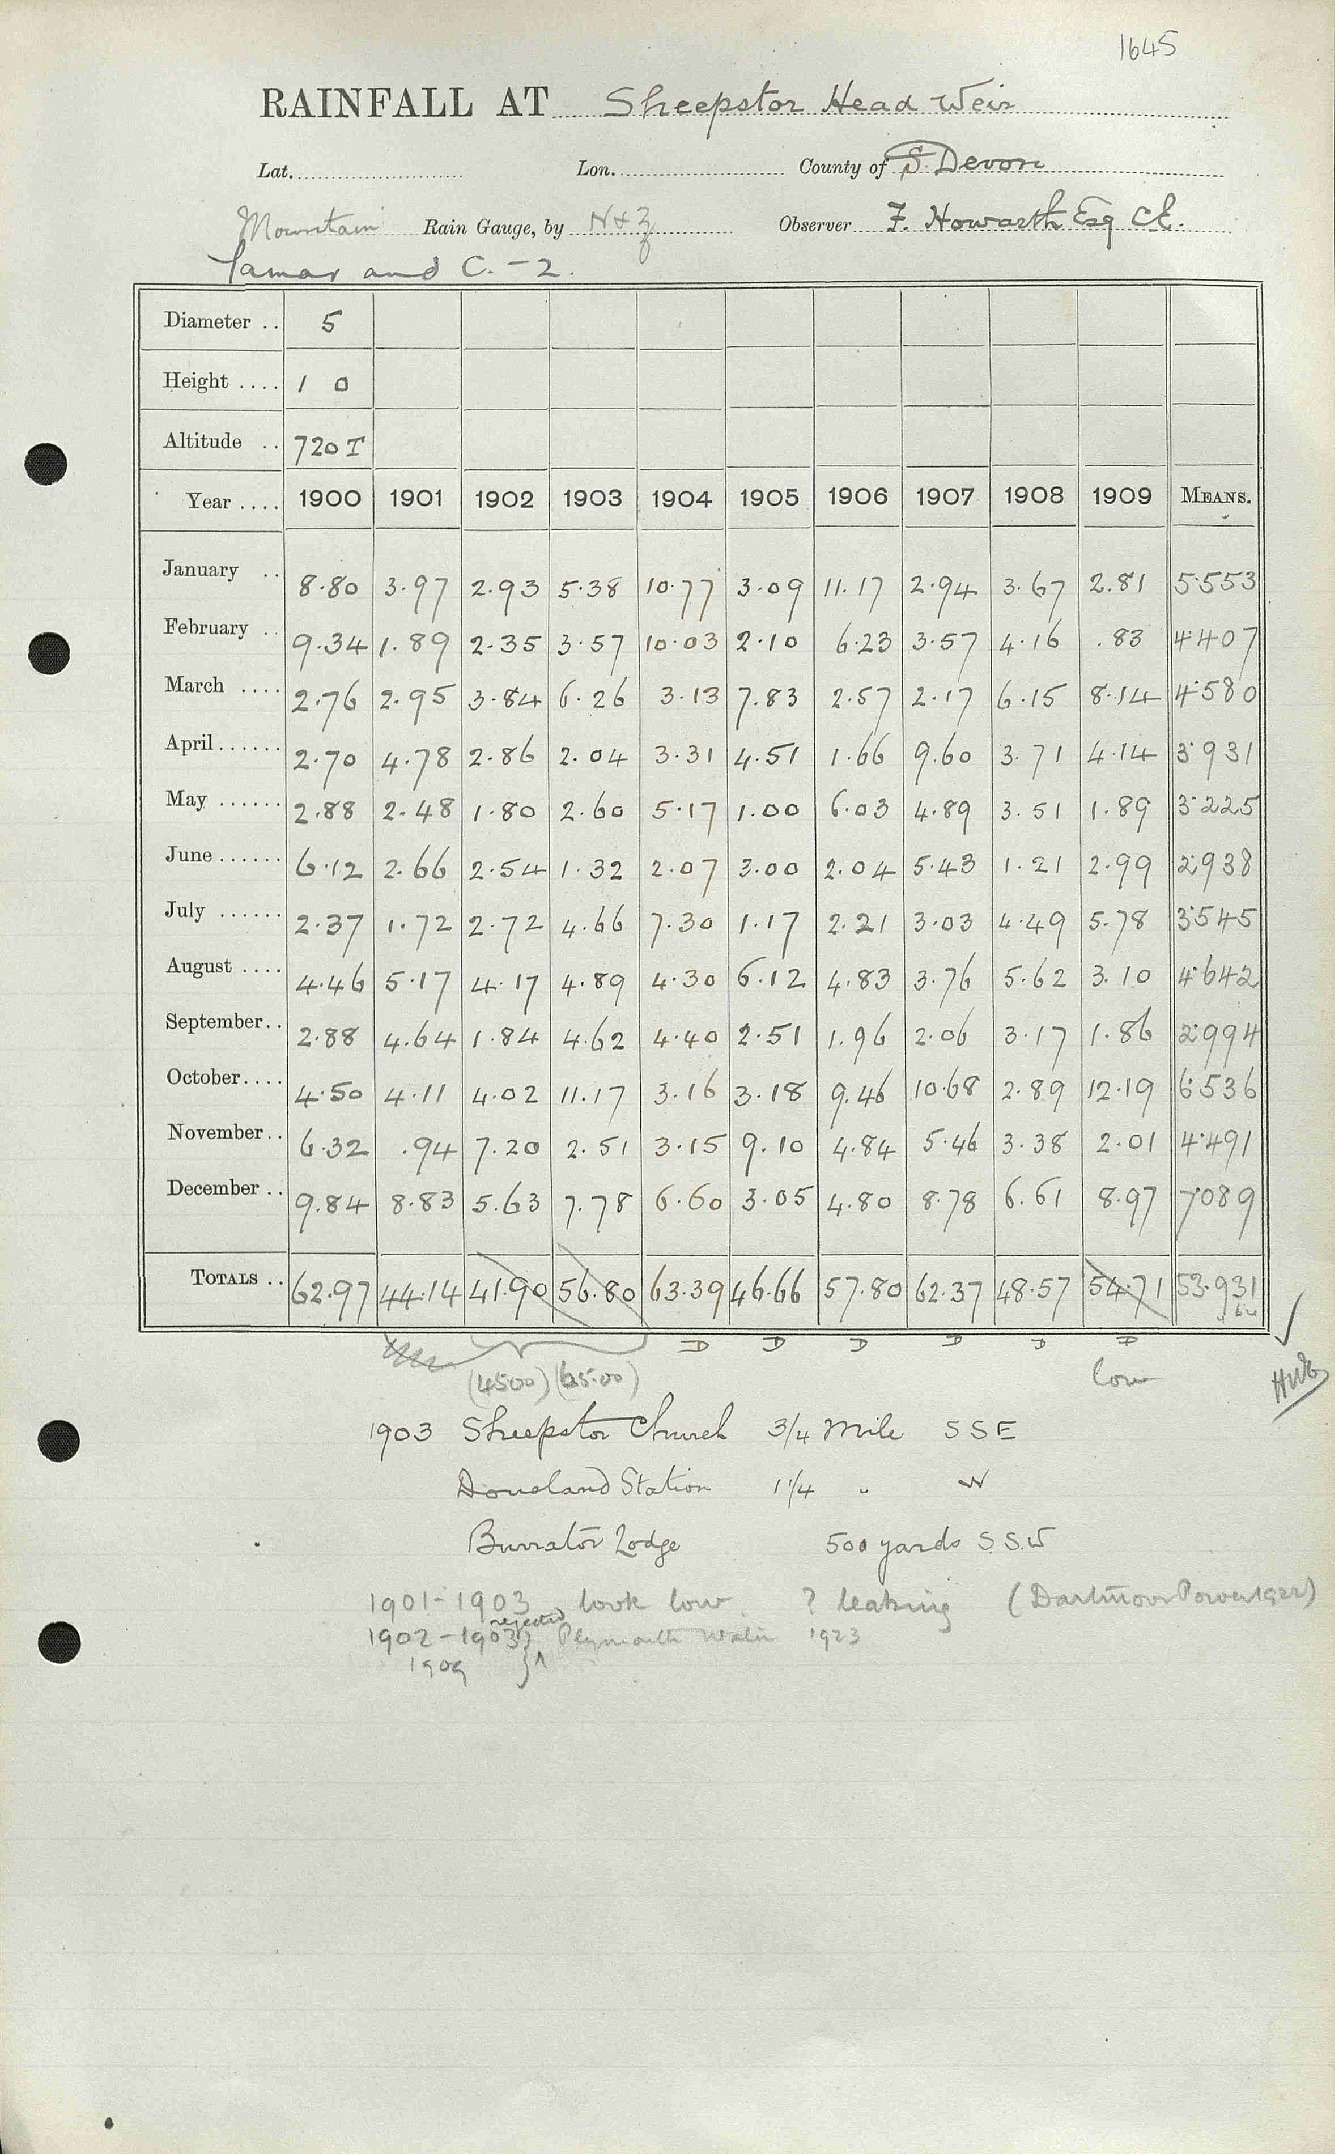 1645
RAINFALL AT Sheepstor Head Weir
Lat. Lon. County of S. Devon
Mountain Rain Gauge, by N & Z Observer F. Howarth Esq C.E.
Tamar and C. - 2.
Diameter .. 5
Height .... 1 0
Altitude .. 720 T
Year .... 1900 1901 1902 1903 1904 1905 1906 1907 1908 1909 MEANS.
January .. 8.80 3.97 2.93 5.38 10.77 3.09 11.17 2.94 3.67 2.81 5.553
February .. 9.34 1.89 2.35 3.57 10.03 2.10 6.23 3.57 4.16 .83 4.407
March .... 2.76 2.95 3.84 6.26 3.13 7.83 2.57 2.17 6.15 8.14 4.580
April ...... 2.70 4.78 2.86 2.04 3.31 4.51 1.66 9.60 3.71 4.14 3.931
May ...... 2.88 2.48 1.80 2.60 5.17 1.00 6.03 4.89 3.51 1.89 3.225
June ...... 6.12 2.66 2.54 1.32 2.07 3.00 2.04 5.43 1.21 2.99 2.938
July ...... 2.37 1.72 2.72 4.66 7.30 1.17 2.21 3.03 4.49 5.78 3.545
August .... 4.46 5.17 4.17 4.89 4.30 6.12 4.83 3.76 5.62 3.10 4.642
September .. 2.88 4.64 1.84 4.62 4.40 2.51 1.96 2.06 3.17 1.86 2.994
October .... 4.50 4.11 4.02 11.17 3.16 3.18 9.46 10.68 2.89 12.19 6.536
November .. 6.32 .94 7.20 2.51 3.15 9.10 4.84 5.46 3.38 2.01 4.491
December .. 9.84 8.83 5.63 7.78 6.60 3.05 4.80 8.78 6.61 8.97 7.089
TOTALS .. 62.97 44.14 41.90 56.80 63.39 46.66 57.80 62.37 48.57 54.71 53.931
D D D D D D
(4500) (65.00) low
1903 Sheepstor Church 3/4 Mile SSE
Dousland Station 1 1/4 " W
Burrator Lodge 500 yards S.S.W
1901-1903 look low. ? leaking (Dartmoor Power 1922)
1902-1903 } rejected Plymouth Water 1923
1909